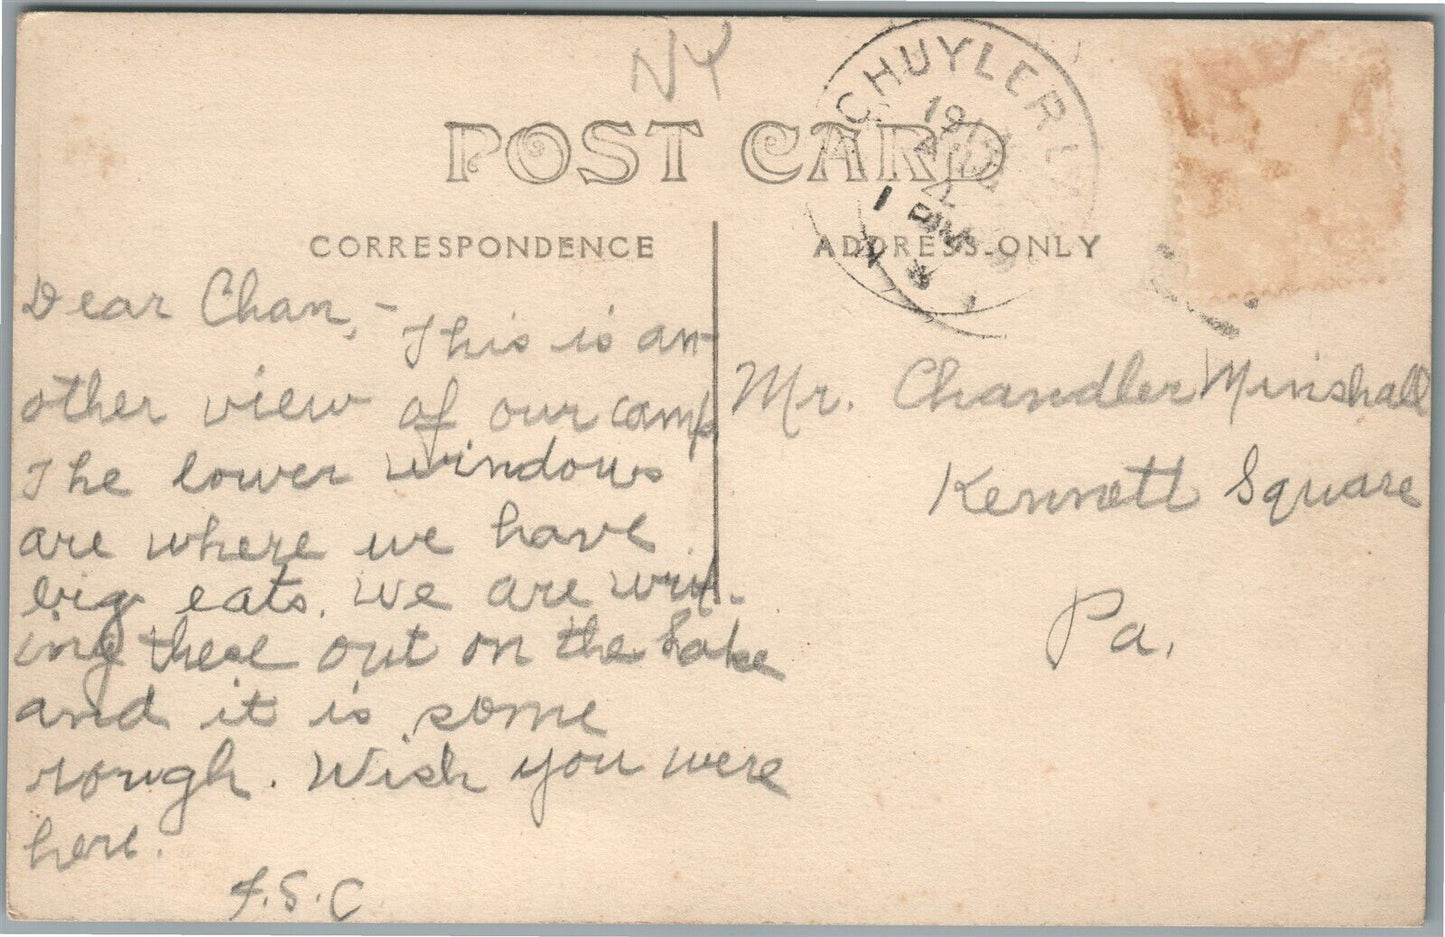 NY
POST CARD
CHUYLER
191
1 PM
CORRESPONDENCE
ADDRESS ONLY
Dear Chan, -
This is an-
other view of our camp
The lower windows
are where we have
big eats. We are writ-
ing these out on the Lake
and it is some
rough. Wish you were
here.
Mr. Chandler Minshall
Kennett Square
Pa.